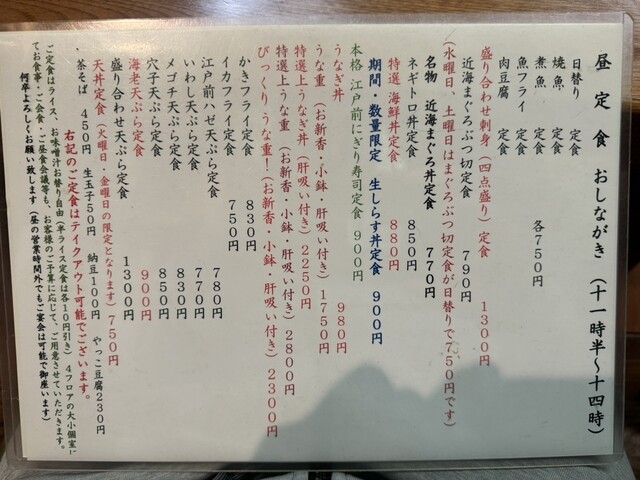 昼定食 おしながき (十一時半~十四時)
日替り 定食
焼魚 定食
煮魚 定食
魚フライ 定食
肉豆腐 定食
各750円
盛り合わせ刺身(四点盛り)定食 1300円
近海まぐろぶつ切定食 790円
(水曜日、土曜日はまぐろぶつ切定食が日替りで、750円です)
名物・近海まぐろ丼定食 770円
ネギトロ丼定食 850円
特選 海鮮丼定食 880円
期間・数量限定 生しらす丼定食 900円
本格 江戸前にぎり寿司定食 900円
うなぎ丼 980円
うな重(お新香・小鉢・肝吸い付き)1750円
特選上うなぎ丼(肝吸い付き)2250円
特選上うな重(お新香・小鉢・肝吸い付き)2800円
びっくりうな重!(お新香・小鉢・肝吸い付き)2300円
かきフライ定食 830円
イカフライ定食 750円
江戸前ハゼ天ぷら定食 780円
いわし天ぷら定食 770円
メゴチ天ぷら定食 830円
穴子天ぷら定食 850円
海老天ぷら定食 900円
盛り合わせ天ぷら定食 1300円
天丼定食(火曜日・金曜日の限定となります)750円
・茶そば 450円 生玉子50円 納豆100円 やっこ豆腐230円
右記のご定食はテイクアウト可能でございます。
ご定食はライス、お味噌汁お替り自由(半ライス定食は各10円引き)4フロアの大小個室に
てお食事・ご会食・ご昼食会議等も、お客様のご予算に応じて、ご用意させていただきます。
何卒よろしくお願い致します(昼の営業時間外でもご宴会は可能で御座います)